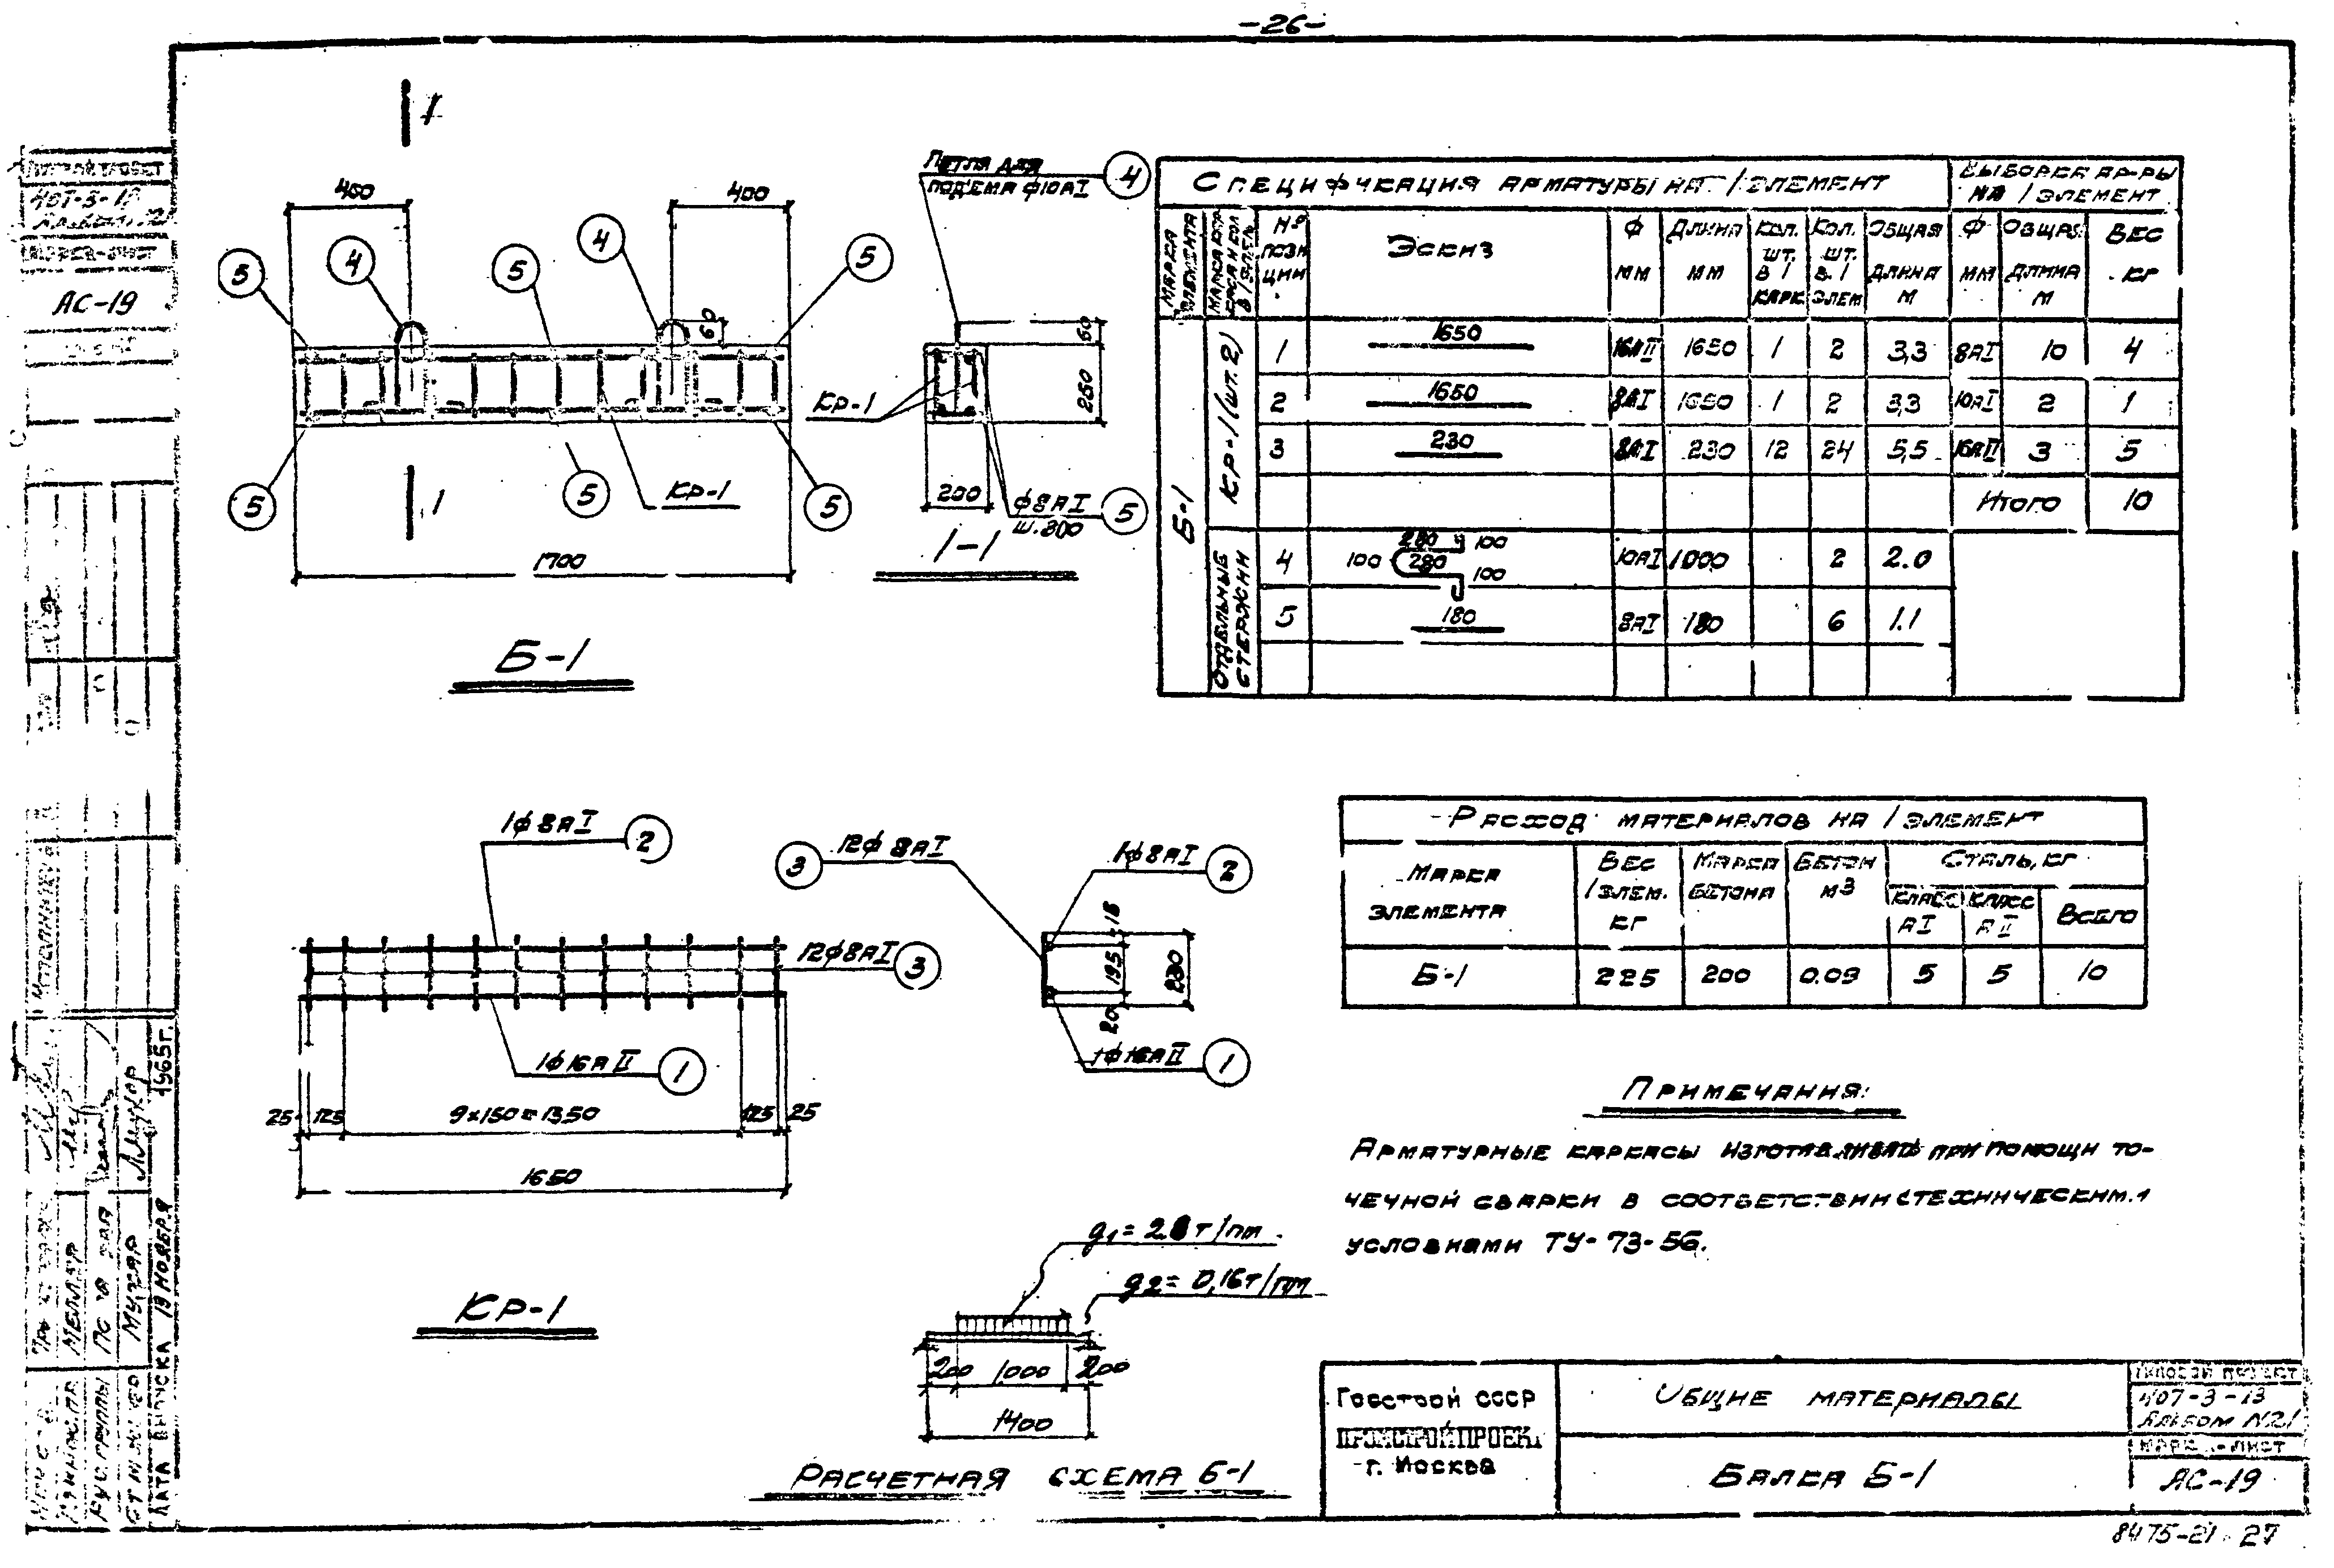 -26-
I
400
400
Петля для
подъема ф10АI
4
5
4
5
4
5
60
60
250
КР-1
200
ф8АI
ш.300
5
5
5
КР-1
5
I
1-1
1700
Б-1
Спецификация арматуры на 1 элемент
Выборка ар-ры
на 1 элемент
Марка
элемента
№
пози
ции
Эскиз
Ф
мм
Длина
мм
Кол.
шт.
в 1
карк
Кол.
шт.
в 1
элем
Общая
длина
м
Ф
мм
Общая
длина
м
Вес
кг
Б-1
КР-1 (шт. 2)
1 1650 16АII 1650 1 2 3,3 8АI 10 4
2 1650 8АI 1650 1 2 3,3 10АI 2 1
3 230 8АI 230 12 24 5,5 16АII 3 5
Итого 10
Отдельные
стержни
4 100 280 280 100 100 10АI 1000 2 2.0
5 180 8АI 180 6 1.1
1ф8АI 2
12ф8АI 3
1ф16АII 1
25 125 9х150=1350 125 25
1650
КР-1
3 12ф8АI
1ф8АI 2
15
195
20
230
1ф16АII 1
Расход материалов на 1 элемент
Марка
элемента
Вес
1 элем.
кг
Марка
бетона
Бетон
м3
Сталь, кг
Класс
АI
Класс
АII
Всего
Б-1 225 200 0.09 5 5 10
Примечания:
Арматурные каркасы изготавливать при помощи то-
чечной сварки в соответствии с техническими
условиями ТУ-73-56.
g2= 0,16т/пм
200 1000 200
1400
Расчетная схема Б-1
Госстрой СССР
ПРОМСТРОЙПРОЕКТ
г. Москва
Общие материалы
Балка Б-1
Типовой проект
407-3-13
Альбом №21
Марка-лист
АС-19
8475-21 27
АС-19
Дата выпуска 19 ноября 1965г.